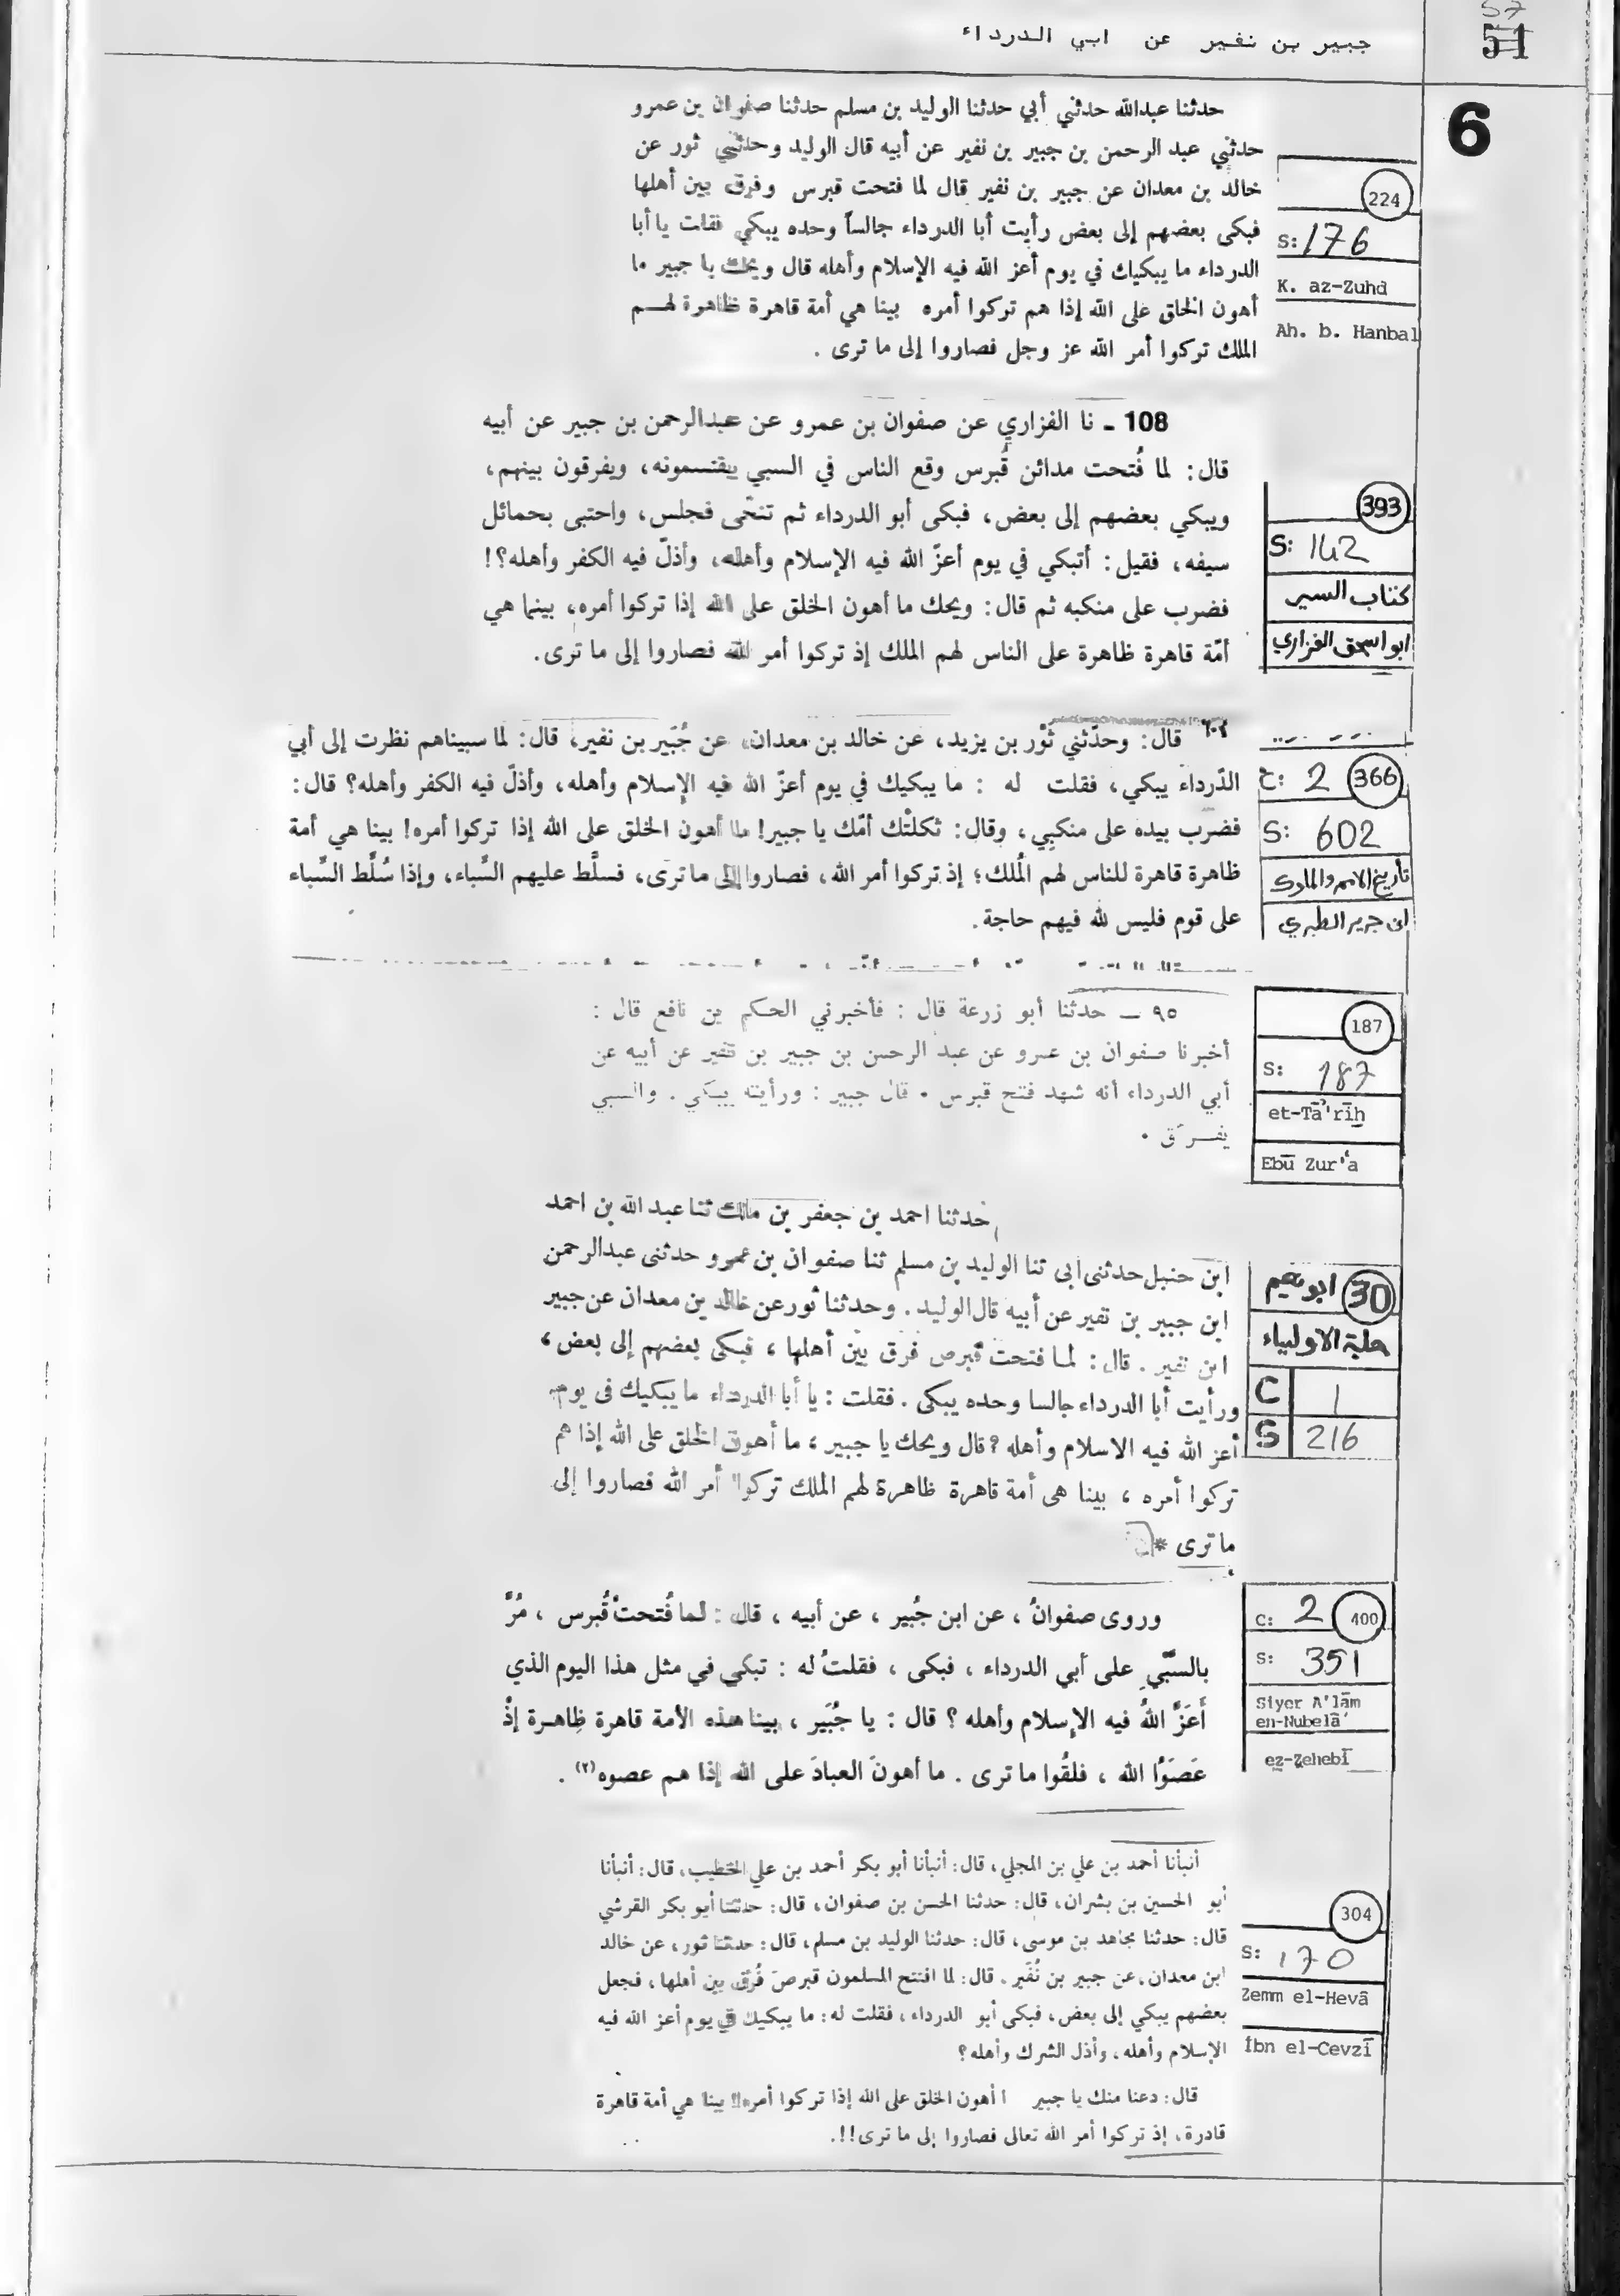 57
51
جبير بن نفير عن ابي الدرداء
6
حدثنا عبدالله حدثني أبي حدثنا الوليد بن مسلم حدثنا صفوان بن عمرو
حدثني عبد الرحمن بن جبير بن نفير عن أبيه قال الوليد وحدثني ثور عن
خالد بن معدان عن جبير بن نفير قال لما فتحت قبرس وفرق بين أهلها
فبكى بعضهم إلى بعض رأيت أبا الدرداء جالساً وحده يبكي فقلت يا أبا
الدرداء ما يبكيك في يوم أعز الله فيه الإسلام وأهله قال ويحك يا جبير ما
أهون الخلق على الله إذا هم تركوا أمره بينا هي أمة قاهرة ظاهرة لهم
الملك تركوا أمر الله عز وجل فصاروا إلى ما ترى .
224
S: 176
K. az-Zuhd
Ah. b. Hanbal
108 ـ نا الفزاري عن صفوان بن عمرو عن عبدالرحمن بن جبير عن أبيه
قال: لما فُتحت مدائن قُبرس وقع الناس في السبي يقتسمونه، ويفرقون بينهم،
ويبكي بعضهم إلى بعض، فبكى أبو الدرداء ثم تنحّى فجلس، واحتبى بحمائل
سيفه، فقيل: أتبكي في يوم أعزّ الله فيه الإسلام وأهله، وأذلّ فيه الكفر وأهله؟!
فضرب على منكبه ثم قال: ويحك ما أهون الخلق على الله إذا تركوا أمره، بينما هي
أمّة قاهرة ظاهرة على الناس لهم الملك إذ تركوا أمر الله فصاروا إلى ما ترى.
393
S: 142
كتاب السير
ابو اسحق الفزاري
٦٠٢ قال: وحدّثني ثَوْر بن يزيد، عن خالد بن معدان، عن جُبَير بن نفير، قال: لما سبيناهم نظرت إلى أبي
الدّرداء يبكي، فقلت له : ما يبكيك في يوم أعزّ الله فيه الإسلام وأهله، وأذلّ فيه الكفر وأهله؟ قال:
فضرب بيده على منكبِي، وقال: ثكلتْك أمّك يا جبير! ما أهون الخلق على الله إذا تركوا أمره! بينا هي أمة
ظاهرة قاهرة للناس لهم الُملك؛ إذ تركوا أمر الله، فصاروا إلى ما ترى، فسلَّط عليهم السَّباء، وإذا سُلِّط السَّباء
على قوم فليس لله فيهم حاجة.
366
ح: 2
S: 602
تأريخ الامم والملوك
ابن جرير الطبري
٩٥ ــ حدثنا أبو زرعة قال : فأخبرني الحكم بن نافع قال :
أخبرنا صفوان بن عمرو عن عبد الرحمن بن جبير بن نفير عن أبيه عن
أبي الدرداء أنه شهد فتح قبرس ٠ قال جبير : ورأيته يبكي . والسبي
يفرّق ٠
187
S: 187
et-Tā'rīḫ
Ebū Zur'a
حدثنا احمد بن جعفر بن مالك ثنا عبد الله بن احمد
ابن حنبل حدثنى ابى ثنا الوليد بن مسلم ثنا صفوان بن عمرو حدثنى عبدالرحمن
ابن جبير بن نفير عن أبيه قال الوليد . وحدثنا ثور عن خالد بن معدان عن جبير
ابن نفير . قال : لما فتحت قبرص فرق بين أهلها ، فبكى بعضهم إلى بعض ،
ورأيت أبا الدرداء جالسا وحده يبكى . فقلت : يا أبا الدرداء ما يبكيك فى يوم
أعز الله فيه الاسلام وأهله ؟ قال ويحك يا جبير ، ما أهون الخلق على الله إذا هم
تركوا أمره ، بينا هى أمة قاهرة ظاهرة لهم الملك تركوا أمر الله فصاروا إلى
ما ترى *
30 ابو نعيم
حلية الاولياء
C 1
S 216
وروى صفوانُ ، عن ابن جُبير ، عن أبيه ، قال : لما فُتحتْ قُبرس ، مُرَّ
بالسَّبْي على أبي الدرداء ، فبكى ، فقلتُ له : تبكي في مثل هذا اليوم الذي
أَعَزَّ اللهُ فيه الإسلام وأهله ؟ قال : يا جُبَير ، بينا هذه الأمة قاهرة ظاهرة إذْ
عَصَوُا الله ، فلقُوا ما ترى . ما أهونَ العبادَ على الله إذا هم عصوه(٢) .
400
C: 2
S: 351
Siyer A'lām
en-Nubelā'
ez-Zehebī
أنبأنا أحمد بن علي بن المجلي، قال: أنبأنا أبو بكر أحمد بن علي الخطيب، قال: أنبأنا
أبو الحسين بن بشران، قال: حدثنا الحسن بن صفوان، قال: حدثنا أبو بكر القرشي
قال: حدثنا مجاهد بن موسى، قال: حدثنا الوليد بن مسلم، قال: حدثنا ثور، عن خالد
ابن معدان، عن جبير بن نُفَير، قال: لما افتتح المسلمون قبرص فُرِّق بين أهلها، فجعل
بعضهم يبكي إلى بعض، فبكى أبو الدرداء، فقلت له: ما يبكيك في يوم أعز الله فيه
الإسلام وأهله، وأذل الشرك وأهله؟
قال: دعنا منك يا جبير ا أهون الخلق على الله إذا تركوا أمره!! بينا هي أمة قاهرة
قادرة، إذ تركوا أمر الله تعالى فصاروا إلى ما ترى!!.
304
S: 170
Zemm el-Hevâ
İbn el-Cevzī